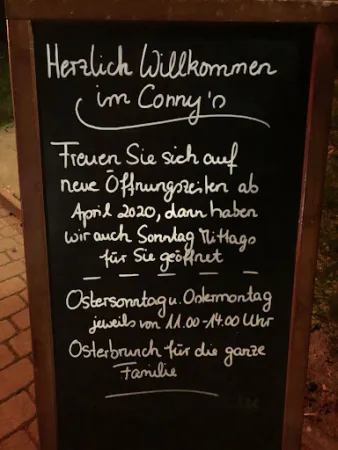 Herzlich Willkommen
im Conny's
Freuen Sie sich auf
neue Öffnungszeiten ab
April 2020, dann haben
wir auch Sonntag Mittags
für Sie geöffnet
Ostersonntag u. Ostermontag
jeweils von 11.00-14.00 Uhr
Osterbrunch für die ganze
Familie